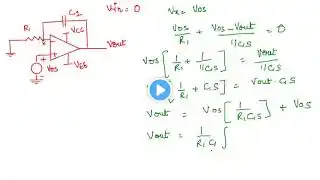 C1
Vin = 0
R1
VCC
Vout
VOS
VSS
Vx = VOS
VOS/R1 + VOS-Vout/1/C1S = 0
VOS[1/R1 + 1/1/C1S] = Vout/1/C1S
1/R1 + C1S] = Vout C1S
Vout = VOS[1/R1C1S] + VOS
Vout = 1/R1C1 ∫